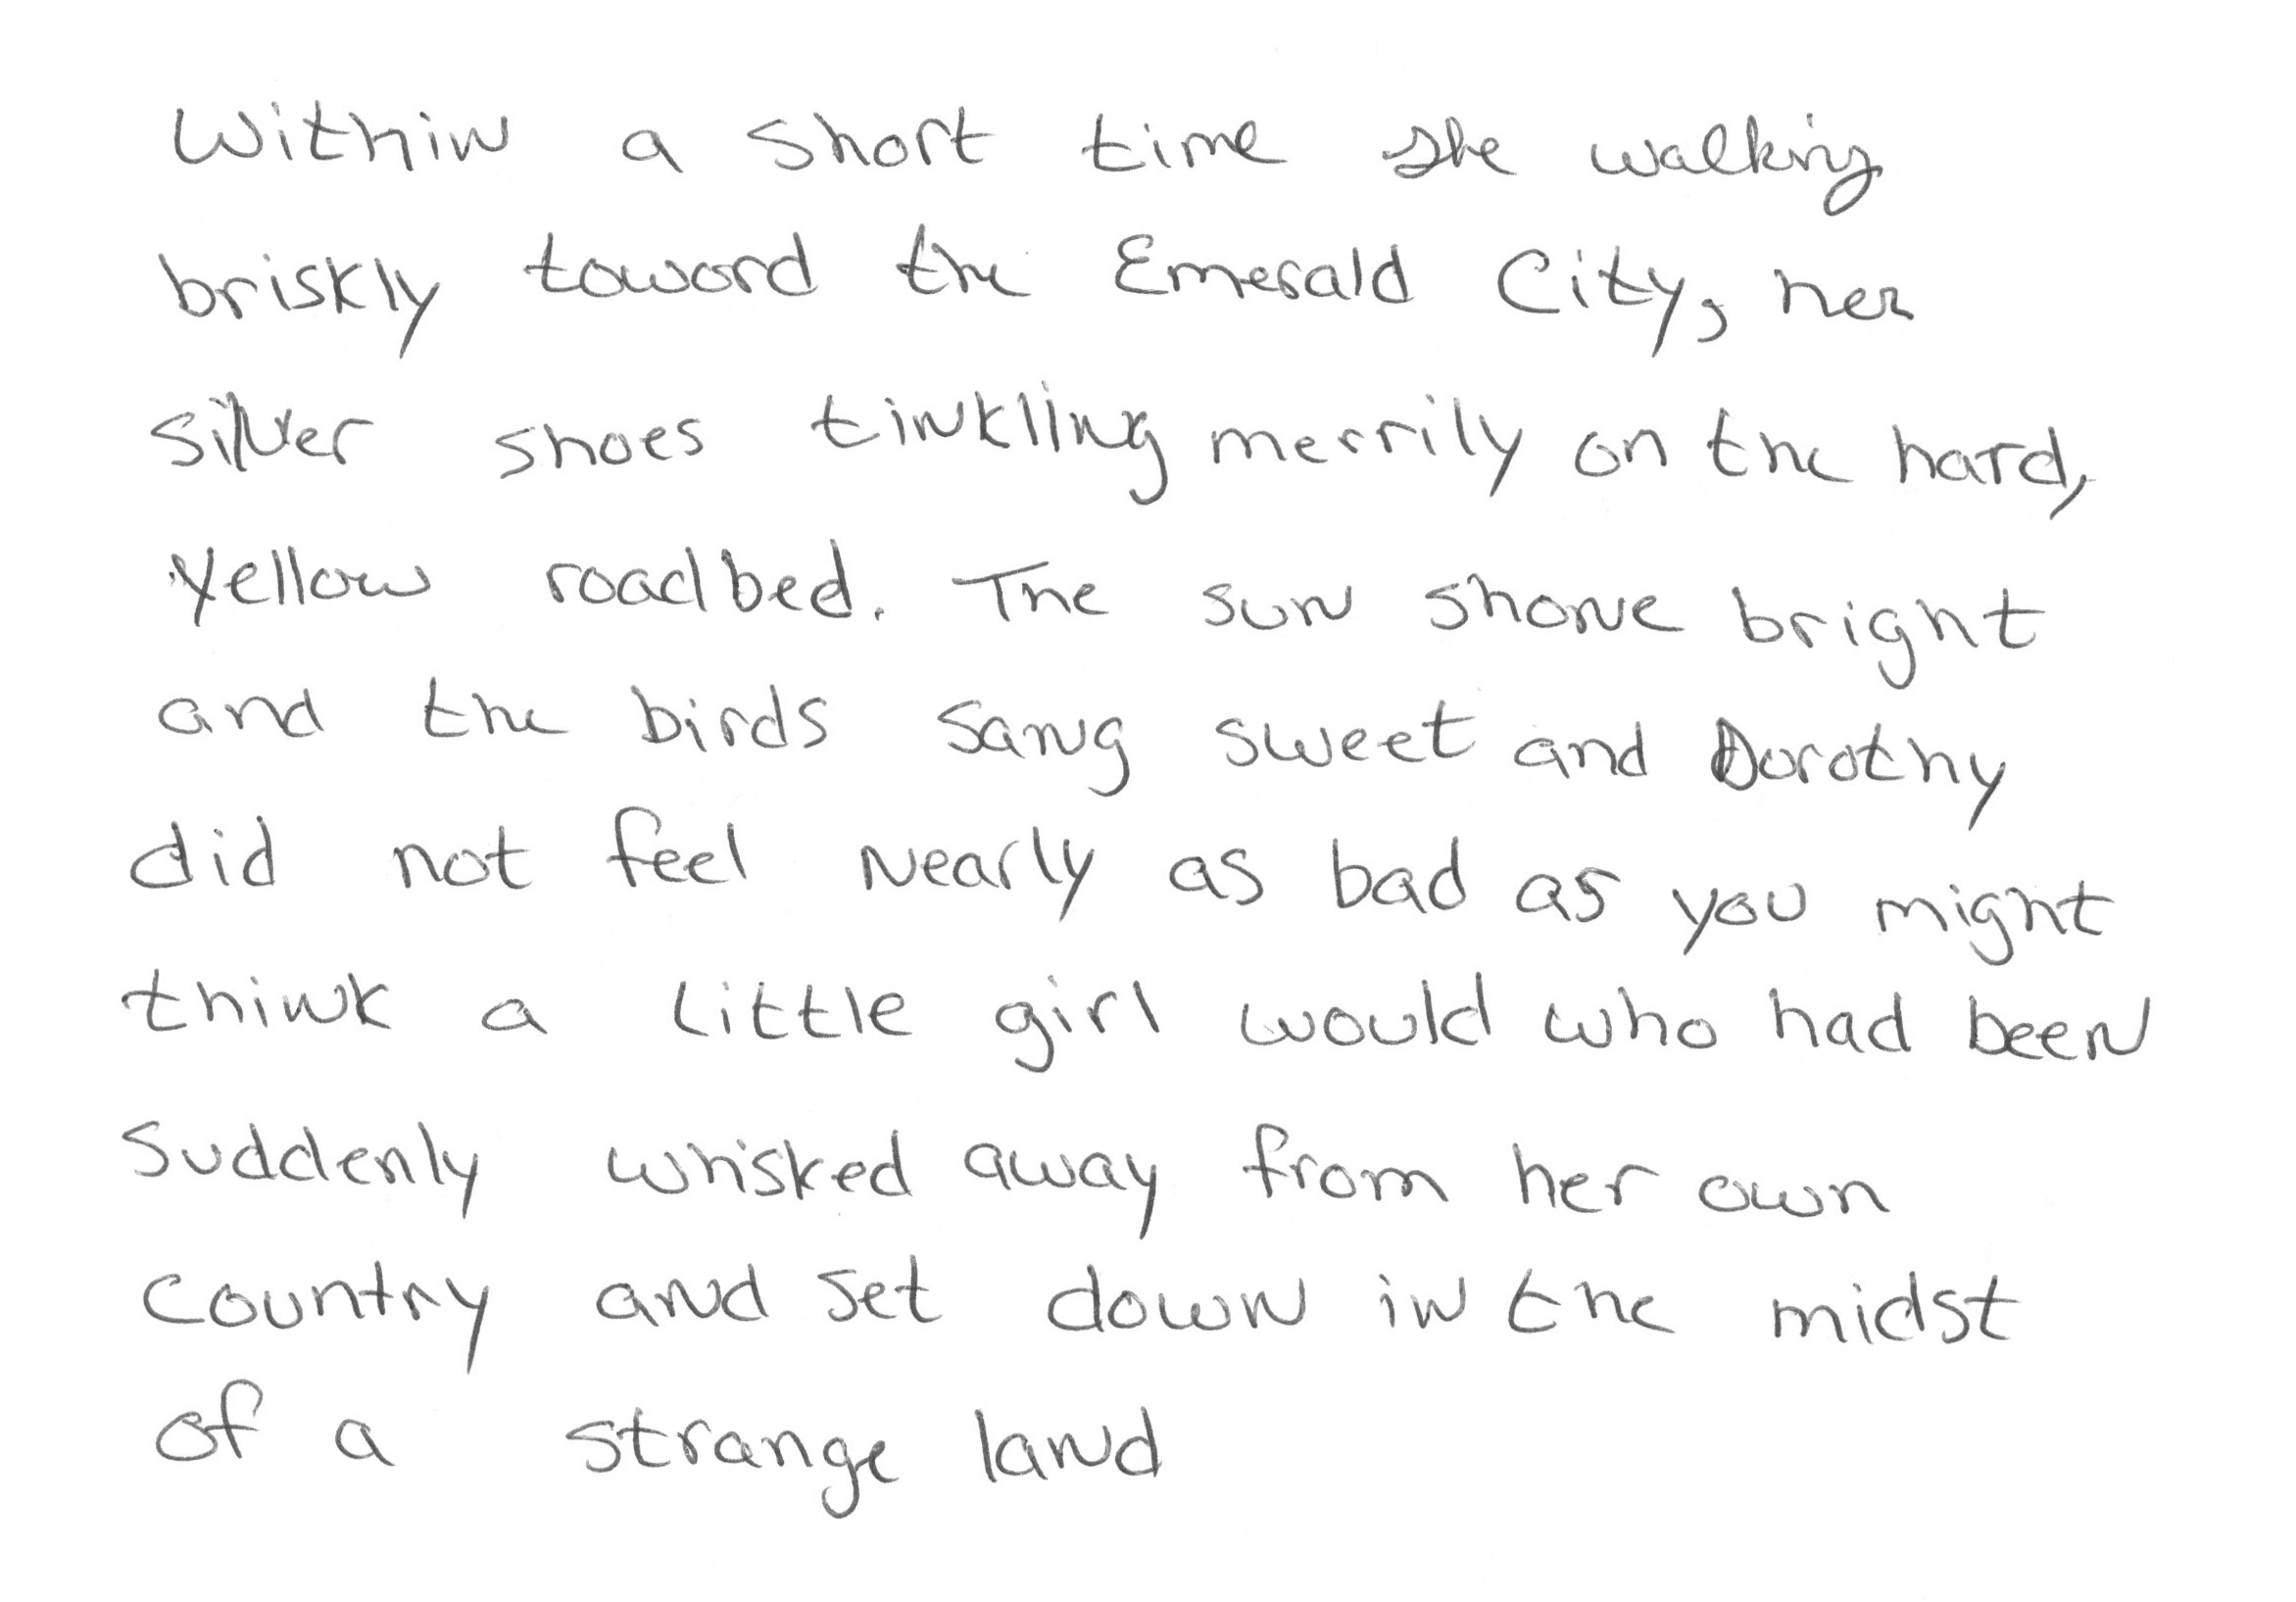 Within a short time she walking
briskly toward the Emerald City, her
silver shoes tinkling merrily on the hard,
yellow roadbed. The sun shone bright
and the birds sang sweet and Dorothy
did not feel nearly as bad as you might
think a little girl would who had been
suddenly whisked away from her own
country and set down in the midst
of a strange land